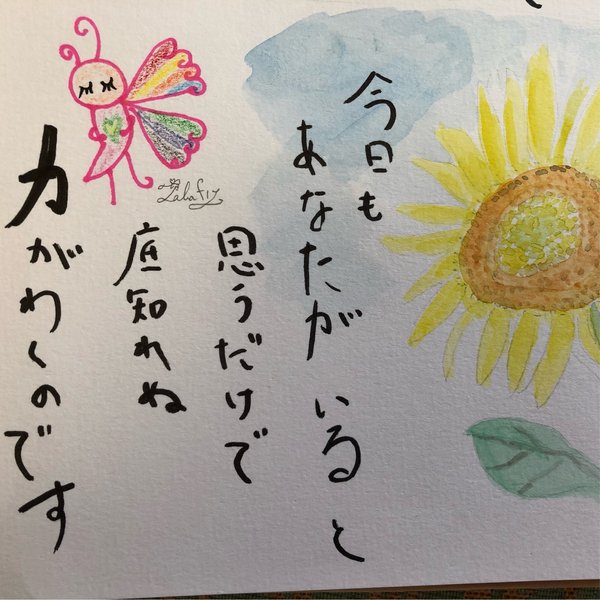 今日も
あなたがいると
思うだけで
底知れぬ
力がわくのです